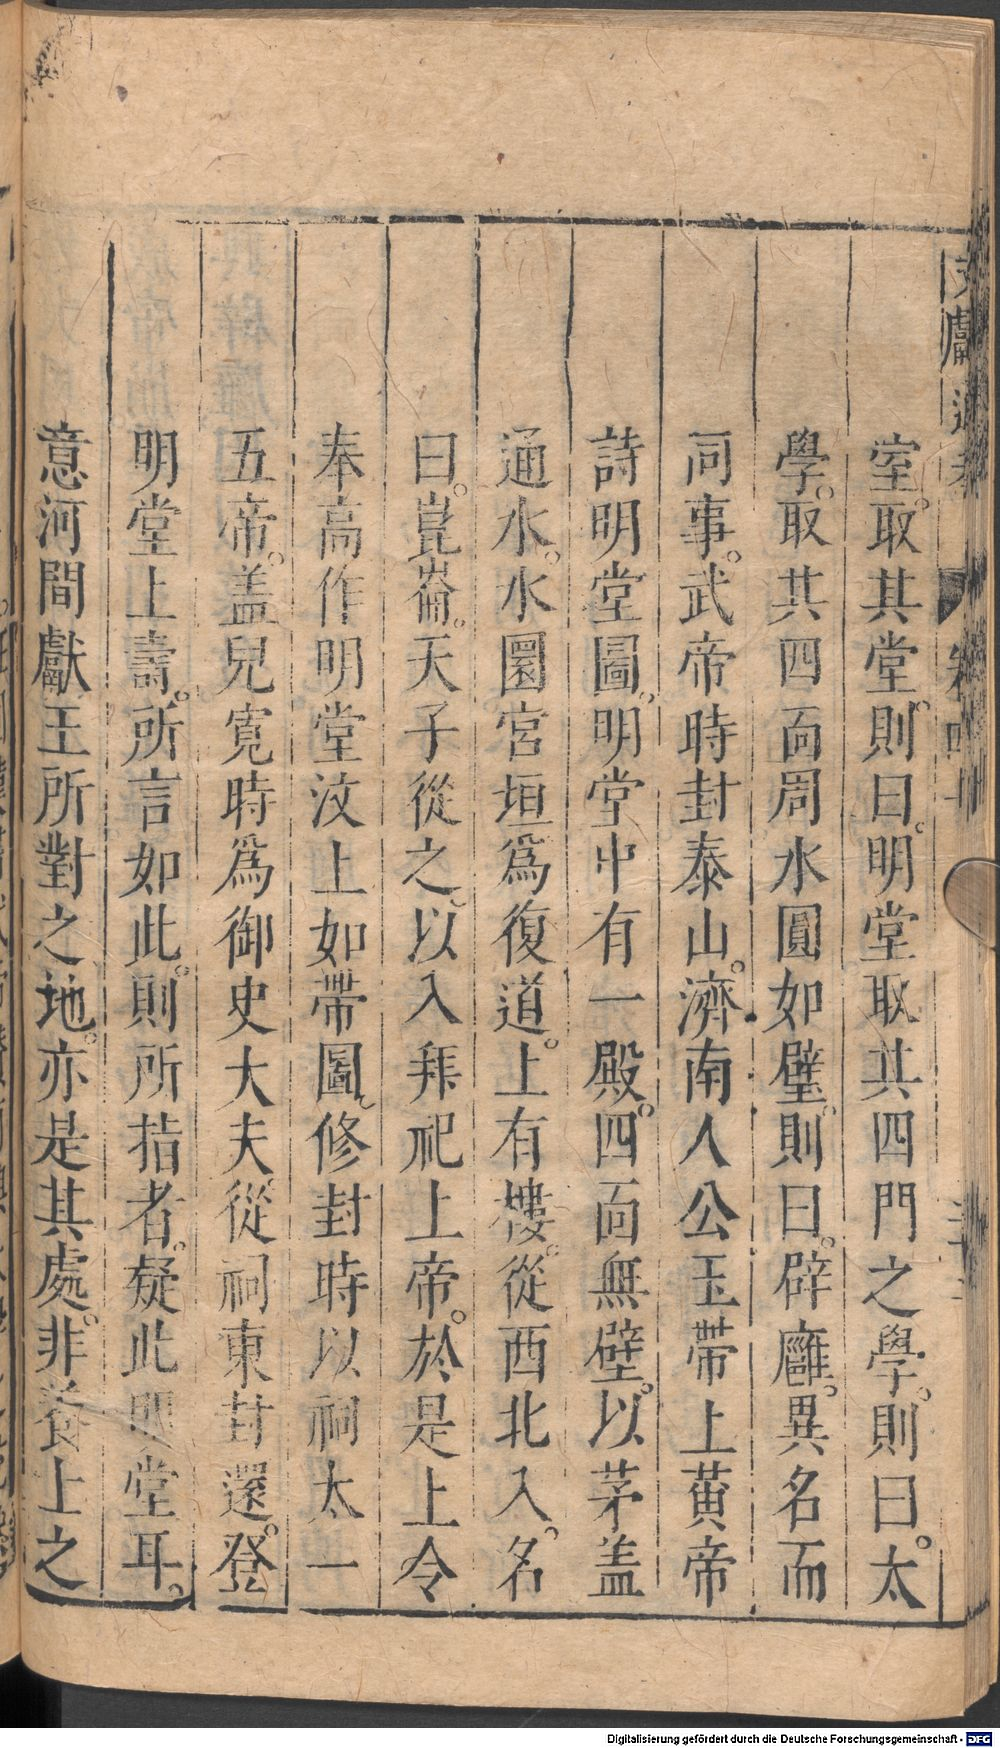 室。取其堂。則曰。明堂取其四門之學。則曰。太
學。取其四面周水圓如璧。則曰。辟廱。異名而
同事。武帝時封泰山。濟南人公玉帶上黃帝
詩明堂圖。明堂中有一殿。四面無壁。以茅蓋
通水。水圜宮垣爲復道。上有樓。從西北入。名
曰。崑崙。天子從之以入拜祀上帝。於是上令
奉高作明堂汶上如帶圖。修封時以祠太一
五帝。蓋兒寬時爲御史大夫從祠東封還。登
明堂上壽。所言如此。則所指者。疑此明堂耳。
意河間獻王所對之地。亦是其處。非養上之
文獻通考 卷四十
Digitalisierung gefördert durch die Deutsche Forschungsgemeinschaft - DFG